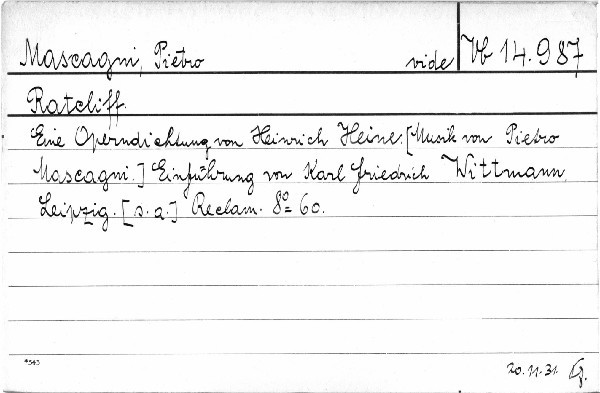 Mascagni, Pietro vide Vb 14.987
Ratcliff.
Eine Operndichtung von Heinrich Heine. [Musik von Pietro
Mascagni.] Einführung von Karl Friedrich Wittmann.
Leipzig. [s. a.] Reclam. 8º = 60.
*543 20.11.31.